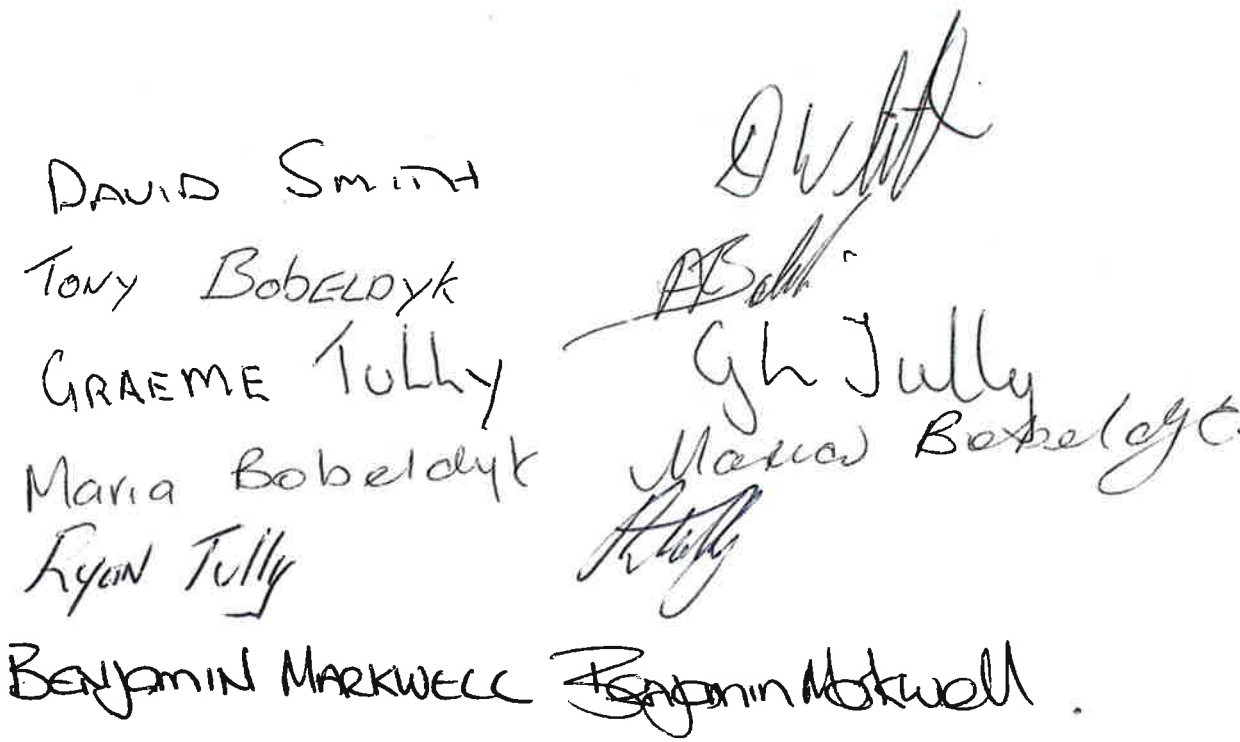 DAVID SMITH
TONY BOBELDYK
GRAEME TULLY Gh Tully
Maria Bobeldyk Maria Bobeldyk
Ryan Tully RTully
BENJAMIN MARKWELL Benjamin Markwell